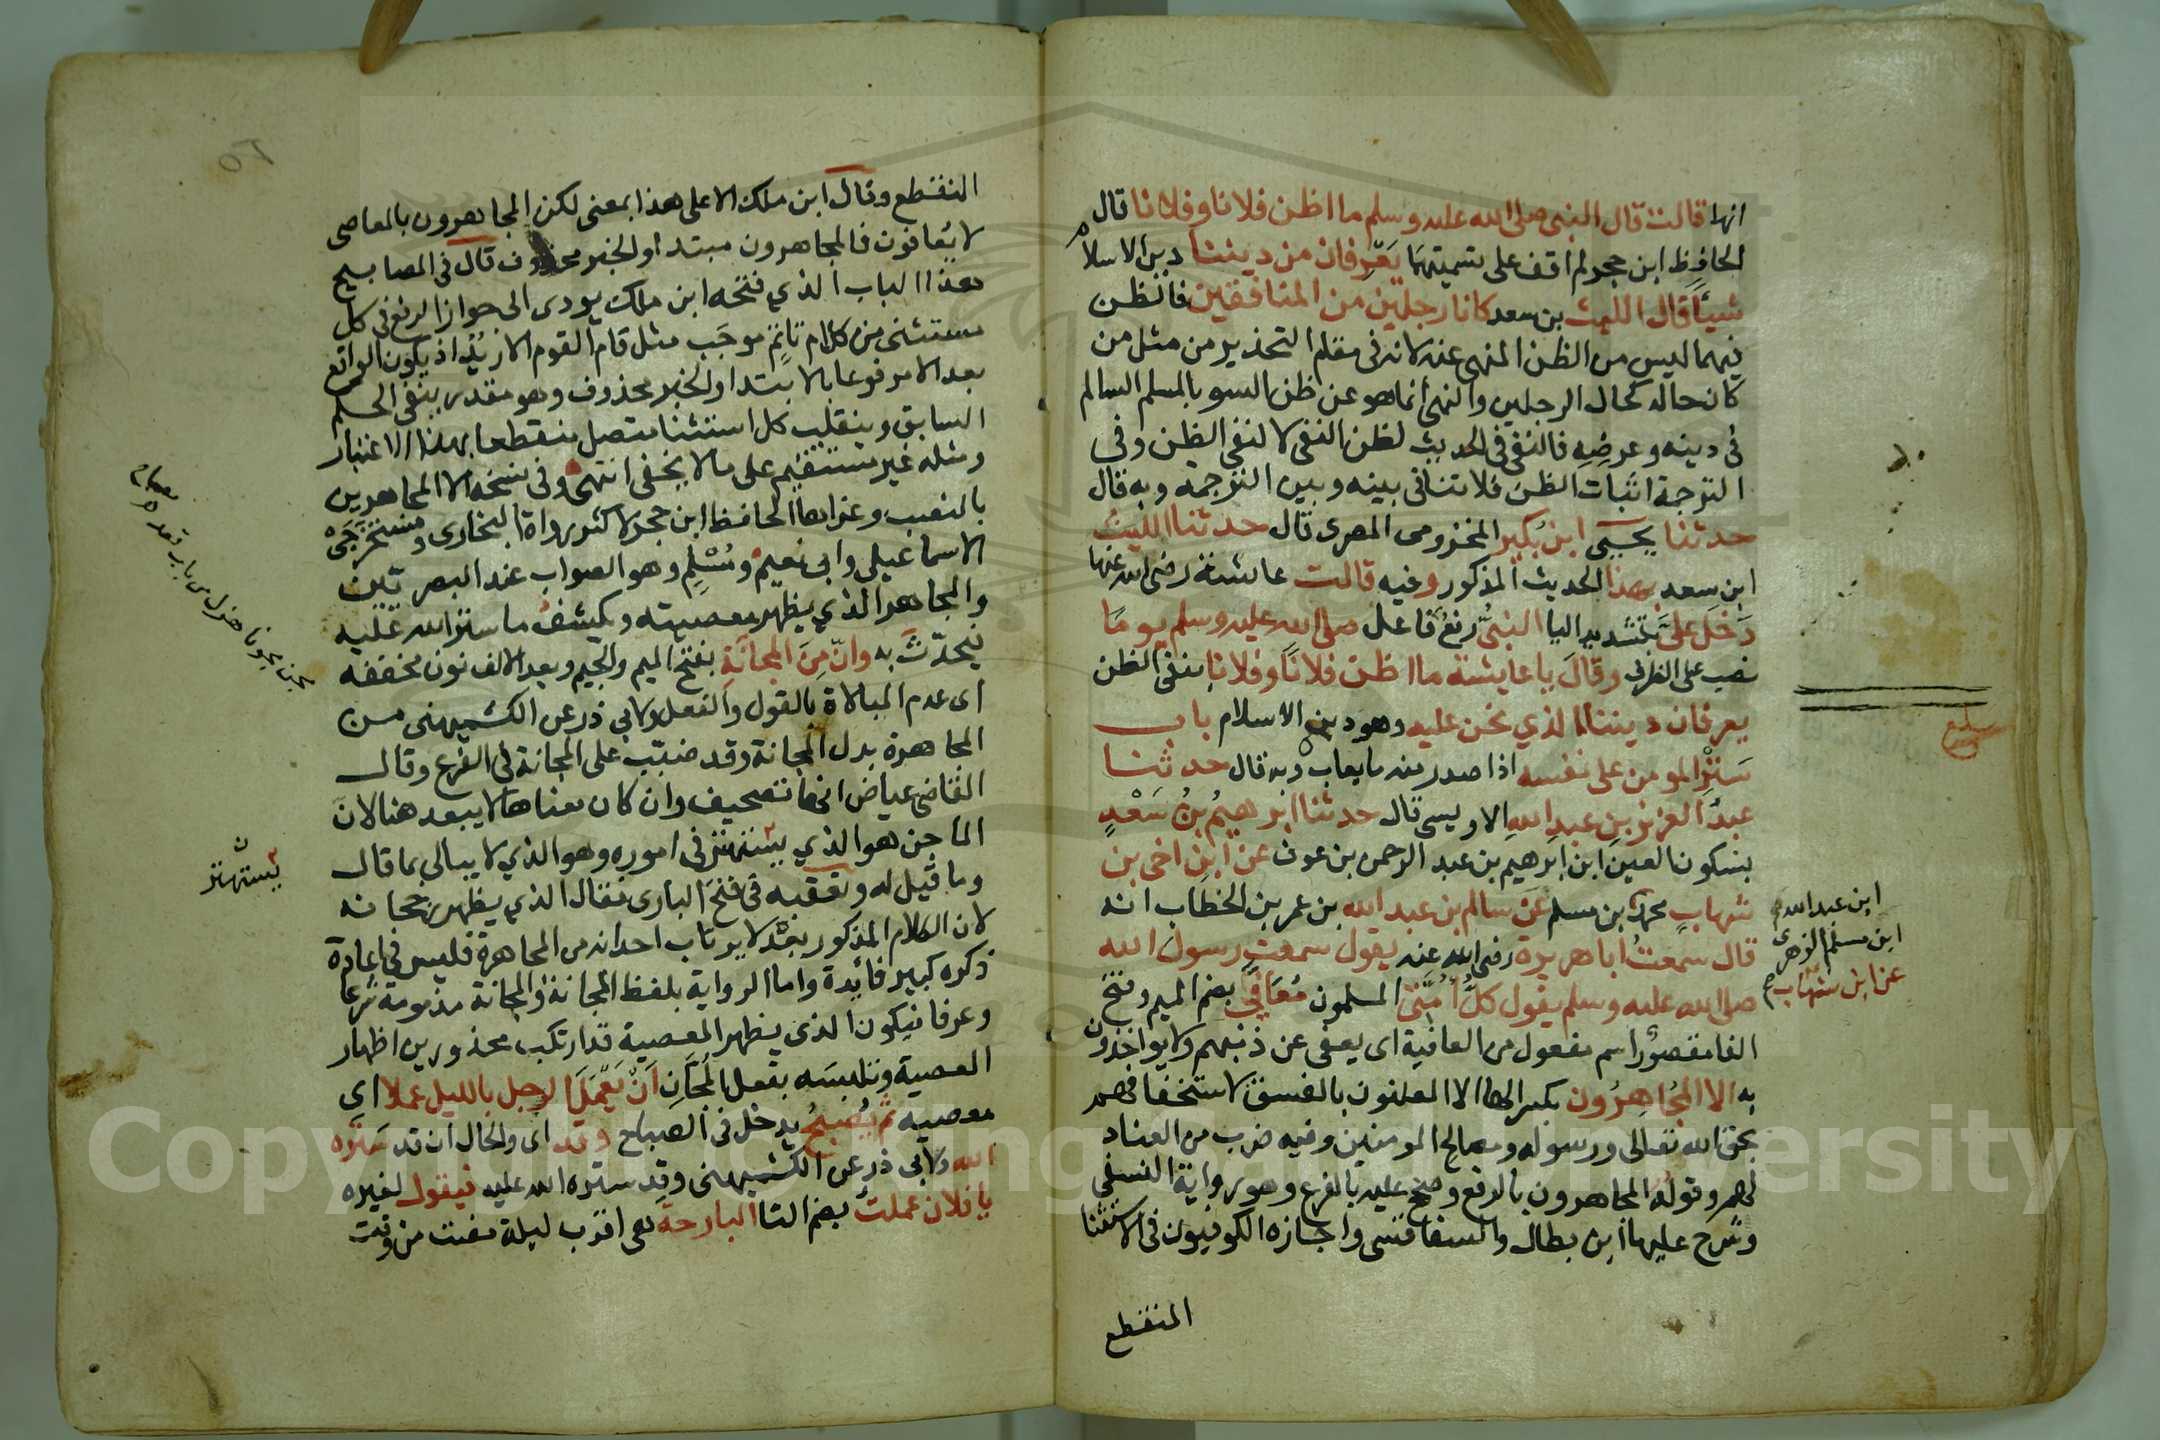 انها قالت قال النبي صلى الله عليه وسلم ما اظن فلانا وفلانا قال
الحافظ ابن حجر لم اقف على تسميتهما يعرفان من ديننا دين الاسلام
شيئا قال الليث بن سعد كانا رجلين من المنافقين فالظن
فيهما ليس من الظن المنهي عنه لانه في مقام التحذير من مثل من
كان حاله كحال الرجلين والنهي انما هو عن ظن السو بالمسلم السالم
في دينه وعرضه فالنفي في الحديث لظن النفي لا لنفي الظن وفي
الترجمة اثبات الظن فلا تنافي بينه وبين الترجمة وبه قال
حدثنا يحيى ابن بكير المخزومي المصري قال حدثنا الليث
ابن سعد بهذا الحديث المذكور وفيه قالت عائشة رضي الله عنها
دخل علي بتشديد اليا النبي رفع فاعل صلى الله عليه وسلم يوما
نصب على الظرف وقال يا عايشة ما اظن فلانا وفلانا بنفي الظن
يعرفان ديننا الذي نحن عليه وهو دين الاسلام باب
ستر المومن على نفسه اذا صدر منه ما يعاب وبه قال حدثنا
عبد العزيز بن عبد الله الاويسي قال حدثنا ابرهيم بن سعد
بسكون العين ابن ابرهيم بن عبد الرحمن بن عوف عن ابن اخي بن
شهاب محمد بن مسلم عن سالم بن عبد الله بن عمر بن الخطاب انه
قال سمعت ابا هريرة رضي الله عنه يقول سمعت رسول الله
صلى الله عليه وسلم يقول كل امتي المسلمون معافى بضم الميم وفتح
الفا مقصور اسم مفعول من العافية اى يعفى عن ذنبهم ولا يواخذون
به الا المجاهرون بكسر الها الا المعلنون بالفسق لاستخفافهم
بحق الله تعالى ورسوله وصالح المومنين وفيه ضرب من العناد
لهم وقوله المجاهرون بالرفع وصحح عليه بالفرع وهو رواية النسفي
وشرح عليها ابن بطال والسفاقسي واجازه الكوفيون في الاستثنا
المنقطع
ابن عبد الله
ابن مسلم الزهري
عن ابن شهاب
المنقطع وقال ابن ملك الا على هذا بمعنى لكن المجاهرون بالمعاصي
لا يعافون فالمجاهرون مبتدا والخبر محذوف قال في المصابيح
هذا الباب الذي فتحه ابن ملك يودي الى جواز الرفع في كل
مستثنى من كلام تام موجب مثل قام القوم الا زيد اذ يكون الواقع
بعد الا مرفوعا بالابتدا والخبر محذوف وهو مقدر بنفي الحكم
السابق وينقلب كل استثنا متصل منقطعا بهذا الاعتبار
ومثله غير مستقيم على ما لا يخفى انتهى وفي نسخة الا المجاهرين
بالنصب وعزاها الحافظ ابن حجر لاكثر رواة البخاري ومستخرجي
الاسماعيلي وابي نعيم ومسلم وهو الصواب عند البصريين
والمجاهر الذي يظهر معصيته ويكشف ما ستر الله عليه
فيحدث به وان من المجانة بفتح الميم والجيم وبعد الالف نون مخففه
اى عدم المبالاة بالقول والفعل ولابي ذر عن الكشميهني من
المجاهرة بدل المجانة وقد ضبب على المجانة في الفرع وقال
القاضي عياض انها تصحيف وان كان معناها لا يبعد هنا لان
الماجن هو الذي يستهتر في اموره وهو الذي لا يبالي بما قال
وما قيل له وتعقبه في فتح الباري فقال الذي يظهر رجحانه
لان الكلام المذكور بعد لا يرتاب احد انه من المجاهرة فليس في اعادة
ذكره كبير فائدة واما الرواية بلفظ المجانة والمجانة مذمومة شرعا
وعرفا فيكون الذي يظهر المعصية قد ارتكب محذورين اظهار
المعصية وتلبسه بفعل المجان ان يعمل الرجل بالليل عملا اى
معصيه ثم يصبح يدخل في الصباح وقد اى والحال ان قد ستره
الله ولابي ذر عن الكشميهني وقد ستره الله عليه فيقول لغيره
يا فلان عملت بضم التا البارحة هي اقرب ليلة مضت من وقت
يستهتر